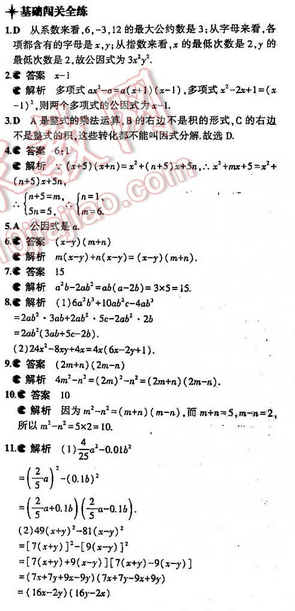 基础闯关全练
1.D 从系数来看,6,-3,12的最大公约数是3;从字母来看,各
项都含有的字母是x,y;从指数来看,x的最低次数是2,y的
最低次数是2,故公因式为3x²y².
2. 答案 x-1
解析 多项式ax²-a=a(x+1)(x-1),多项式x²-2x+1=(x
-1)²,则两个多项式的公因式为x-1.
3.D A是整式的乘法运算,B的右边不是积的形式,C的右边
不是整式的积,这些转化都不能叫因式分解.故选D.
4. 答案 6;1
解析 ∵(x+5)(x+n)=x²+(n+5)x+5n,∴x²+mx+5=x²+
(n+5)x+5n,
∴{n+5=m, 5n=5, ∴{n=1, m=6.
5.A 公因式是a.
6. 答案 (x-y)(m+n)
解析 m(x-y)+n(x-y)=(x-y)(m+n).
7. 答案 15
解析 a²b-2ab²=ab(a-2b)=3×5=15.
8. 解析 (1)6a²b³+10ab²c-4ab³
=2ab²·3ab+2ab²·5c-2ab²·2b
=2ab²(3ab+5c-2b).
(2)24x²-8xy+4x=4x(6x-2y+1).
9. 答案 (2m+n)(2m-n)
解析 4m²-n²=(2m)²-n²=(2m+n)(2m-n).
10. 答案 10
解析 因为m²-n²=(m+n)(m-n),而m+n=5,m-n=2,
所以m²-n²=5×2=10.
11. 解析 (1)4/25a²-0.01b²
=(2/5a)²-(0.1b)²
=(2/5a+0.1b)(2/5a-0.1b).
(2)49(x+y)²-81(x-y)²
=[7(x+y)]²-[9(x-y)]²
=[7(x+y)+9(x-y)][7(x+y)-9(x-y)]
=(7x+7y+9x-9y)(7x+7y-9x+9y)
=(16x-2y)(16y-2x)